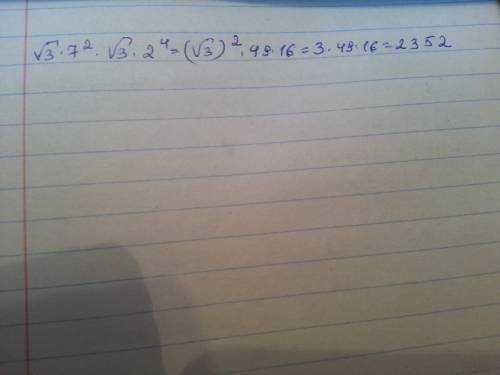 √3 · 7² · √3 · 2⁴ = (√3)² · 49 · 16 = 3 · 49 · 16 = 2352